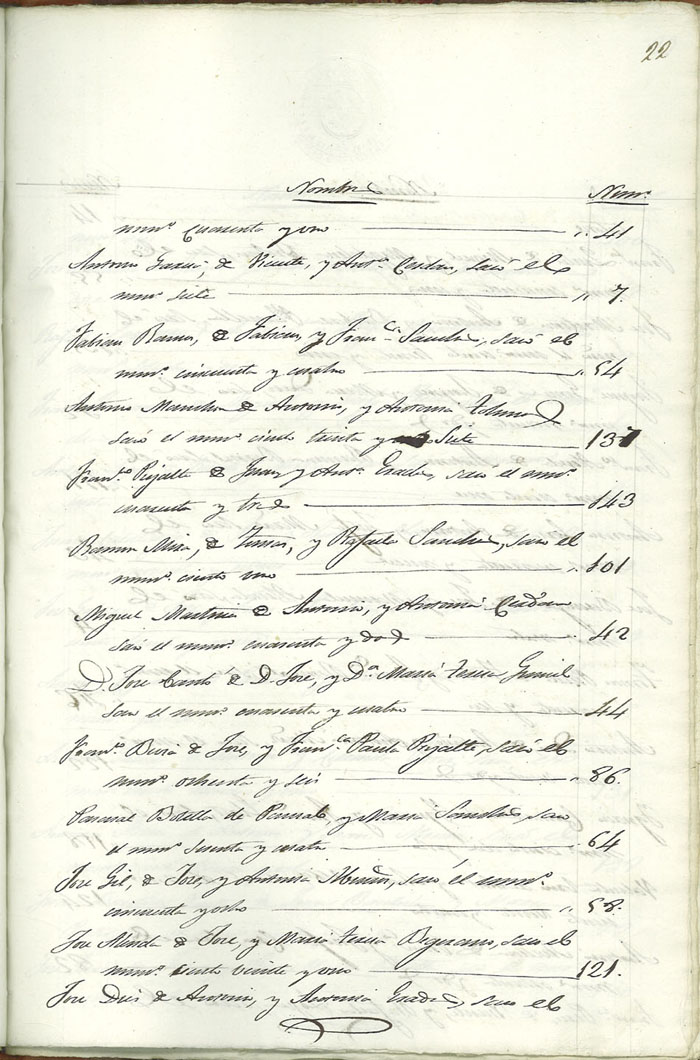 22
Nombre Num.º
num.º cuarenta y uno 41
Antonio Garcia, de Vicente, y Ant.ª sacó el
num.º siete 7.
Fabian Ramon, de Fabian, y Fran.ca Sanchez, sacó el
num.º cincuenta y cuatro 54
Antonio de Antonio, y Antonia
sacó el num.º ciento treinta y Siete 137
Fran.co Rijalte de y Ant.ª sacó el num.º
cuarenta y tres 143
Ramon Mira, de Tomas, y Rafaela Sanchez, sacó el
num.º ciento uno 101
Miguel Martinez de Antonio, y Antonia
sacó el num.º cuarenta y dos 42
D. Jose Cantó de D. Jose, y D.ª Maria Teresa
saco el num.º cuarenta y cuatro 44
Fran.co de Jose, y Fran.ca Paula Rijalte, sacó el
num.º ochenta y seis 86.
Pascual Botella de Pascual, y Maria Sanchez, saco
el num.º sesenta y cuatro 64
Jose Gil, de Jose, y Antonia sacó el num.º
cincuenta y ocho 58.
Jose de Jose, y Maria Teresa saco el
num.º ciento veinte y uno 121.
Jose de Antonio, y Antonia saco el